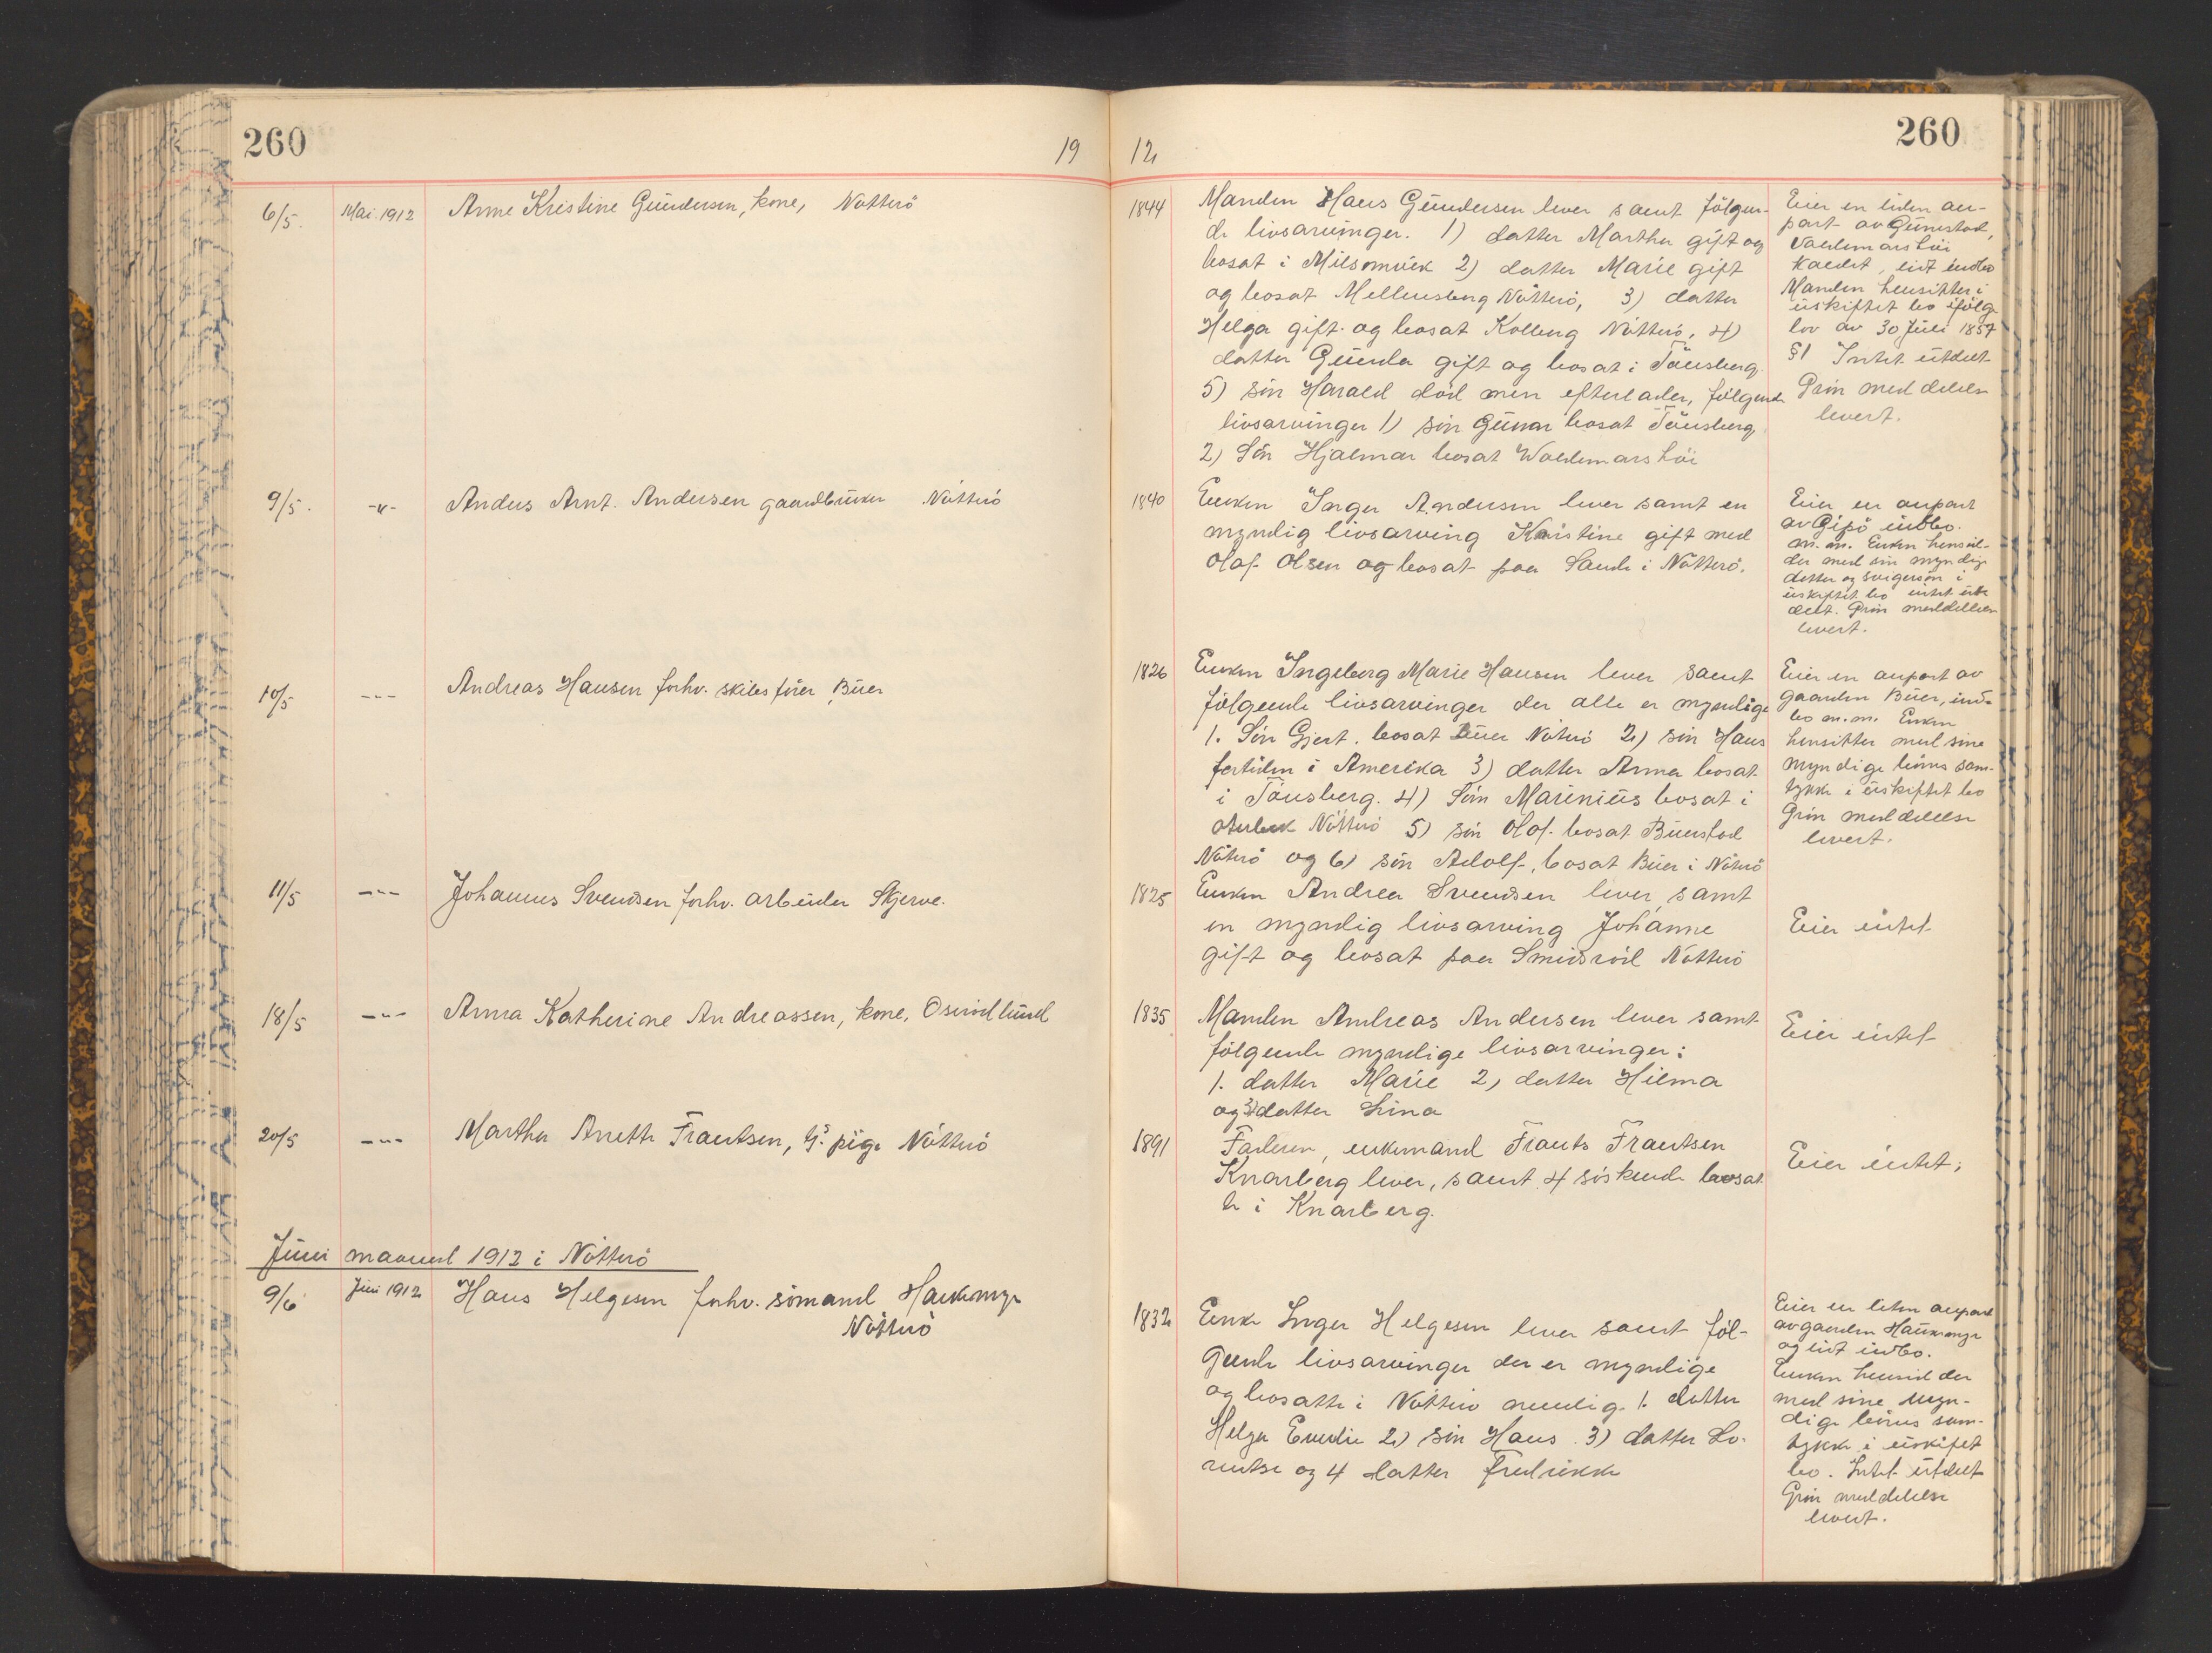 260
19
12
260
6/5. Mai 1912 Anne Kristine Gundersen, kone, Nøtterø
1844 Manden Hans Gundersen lever samt følgen-
de livsarvinger. 1) datter Martha gift og
bosat i 2) datter Marie gift
og bosat Nøtterø, 3) datter
Helga gift og bosat Kolberg Nøtterø, 4)
datter Gunda gift og bosat i Tönsberg.
5) sön Harald död men efterlader, følgende
livsarvinger 1) sön Gunnar bosat Tönsberg
2) Sön Hjalmar bosat Waldemarshöi
Eier en liden an-
part av Gunestad,
Valdemarshöi
kaldet, lidt indbo
Manden hensitter i
uskiftet bo ifølge
lov av 30 Juli 1857
§1 Intet utdelt
Grön meddelelse
levert.
9/5. -"- Anders Arnt. Andersen gaardbruker Nøtterø
1840 Enken Inger Andersen lever samt en
myndig livsarving Kristine gift med
Olaf Olsen og bosat paa Sande i Nøtterø.
Eier en anpart
av Gipö indbo
m.m. Enken hensid-
der med sin myndige
datter og svigersön i
uskiftet bo intet ut-
delt. Grön meddelelse
levert.
10/5 -"- Andreas Hansen forhv. skibsförer, Buer
1826 Enken Ingeborg Marie Hansen lever samt
følgende livsarvinger der alle er myndige
1. Sön Gjert. bosat Buer Nøterø 2) sön Hans
fortiden i Amerika 3) datter Anna bosat
i Tönsberg. 4) Sön Marinius bosat i
Nøtterø 5) sön Olaf. bosat Buerstad
Nøterø og 6) sön Adolf, bosat Buer i Nøterø
Eier en anpart av
gaarden Buer, ind-
bo m.m. Enken
hensitter med sine
myndige börns sam-
tykke i uskiftet bo
Grön meddelelse
levert.
11/5 -"- Johannes Svendsen forhv. arbeider Skjerve.
1825 Enken Andrea Svendsen lever, samt
en myndig livsarving Johanne
gift og bosat paa Smidsröd Nøtterø
Eier intet
18/5 -"- Anna Katherine Andreassen, kone, Osvindlund
1835 Manden Andreas Andersen lever samt
følgende myndige livsarvinger:
1. datter Marie 2, datter Hilma
og 3) datter Lina
Eier intet
20/5 -"- Martha Anette Frantsen, G. pige Nøtterø
1891 Faderen, enkemand Frants Frantsen
Knarberg lever, samt 4 söskende bosat
te i Knarberg.
Eier intet;
Juni maaned 1912 i Nøtterø
9/6 Juni 1912 Hans Helgesen forhv. sömand Haukemyr
Nøtterø
1832 Enke Inger Helgesen lever samt föl-
gende livsarvinger der er myndige
og bosatte i Nøtterø nemlig. 1. datter
Helga Emelie 2) sön Hans. 3) datter Lo-
rentse og 4 datter Fredrikke
Eier en liten anpart
av gaarden Haukemyr
og lidt indbo.
Enken hensidder
med sine myn-
dige börns sam-
tykke i uskiftet
bo. Intet utdelt
Grön meddelelse
levert.